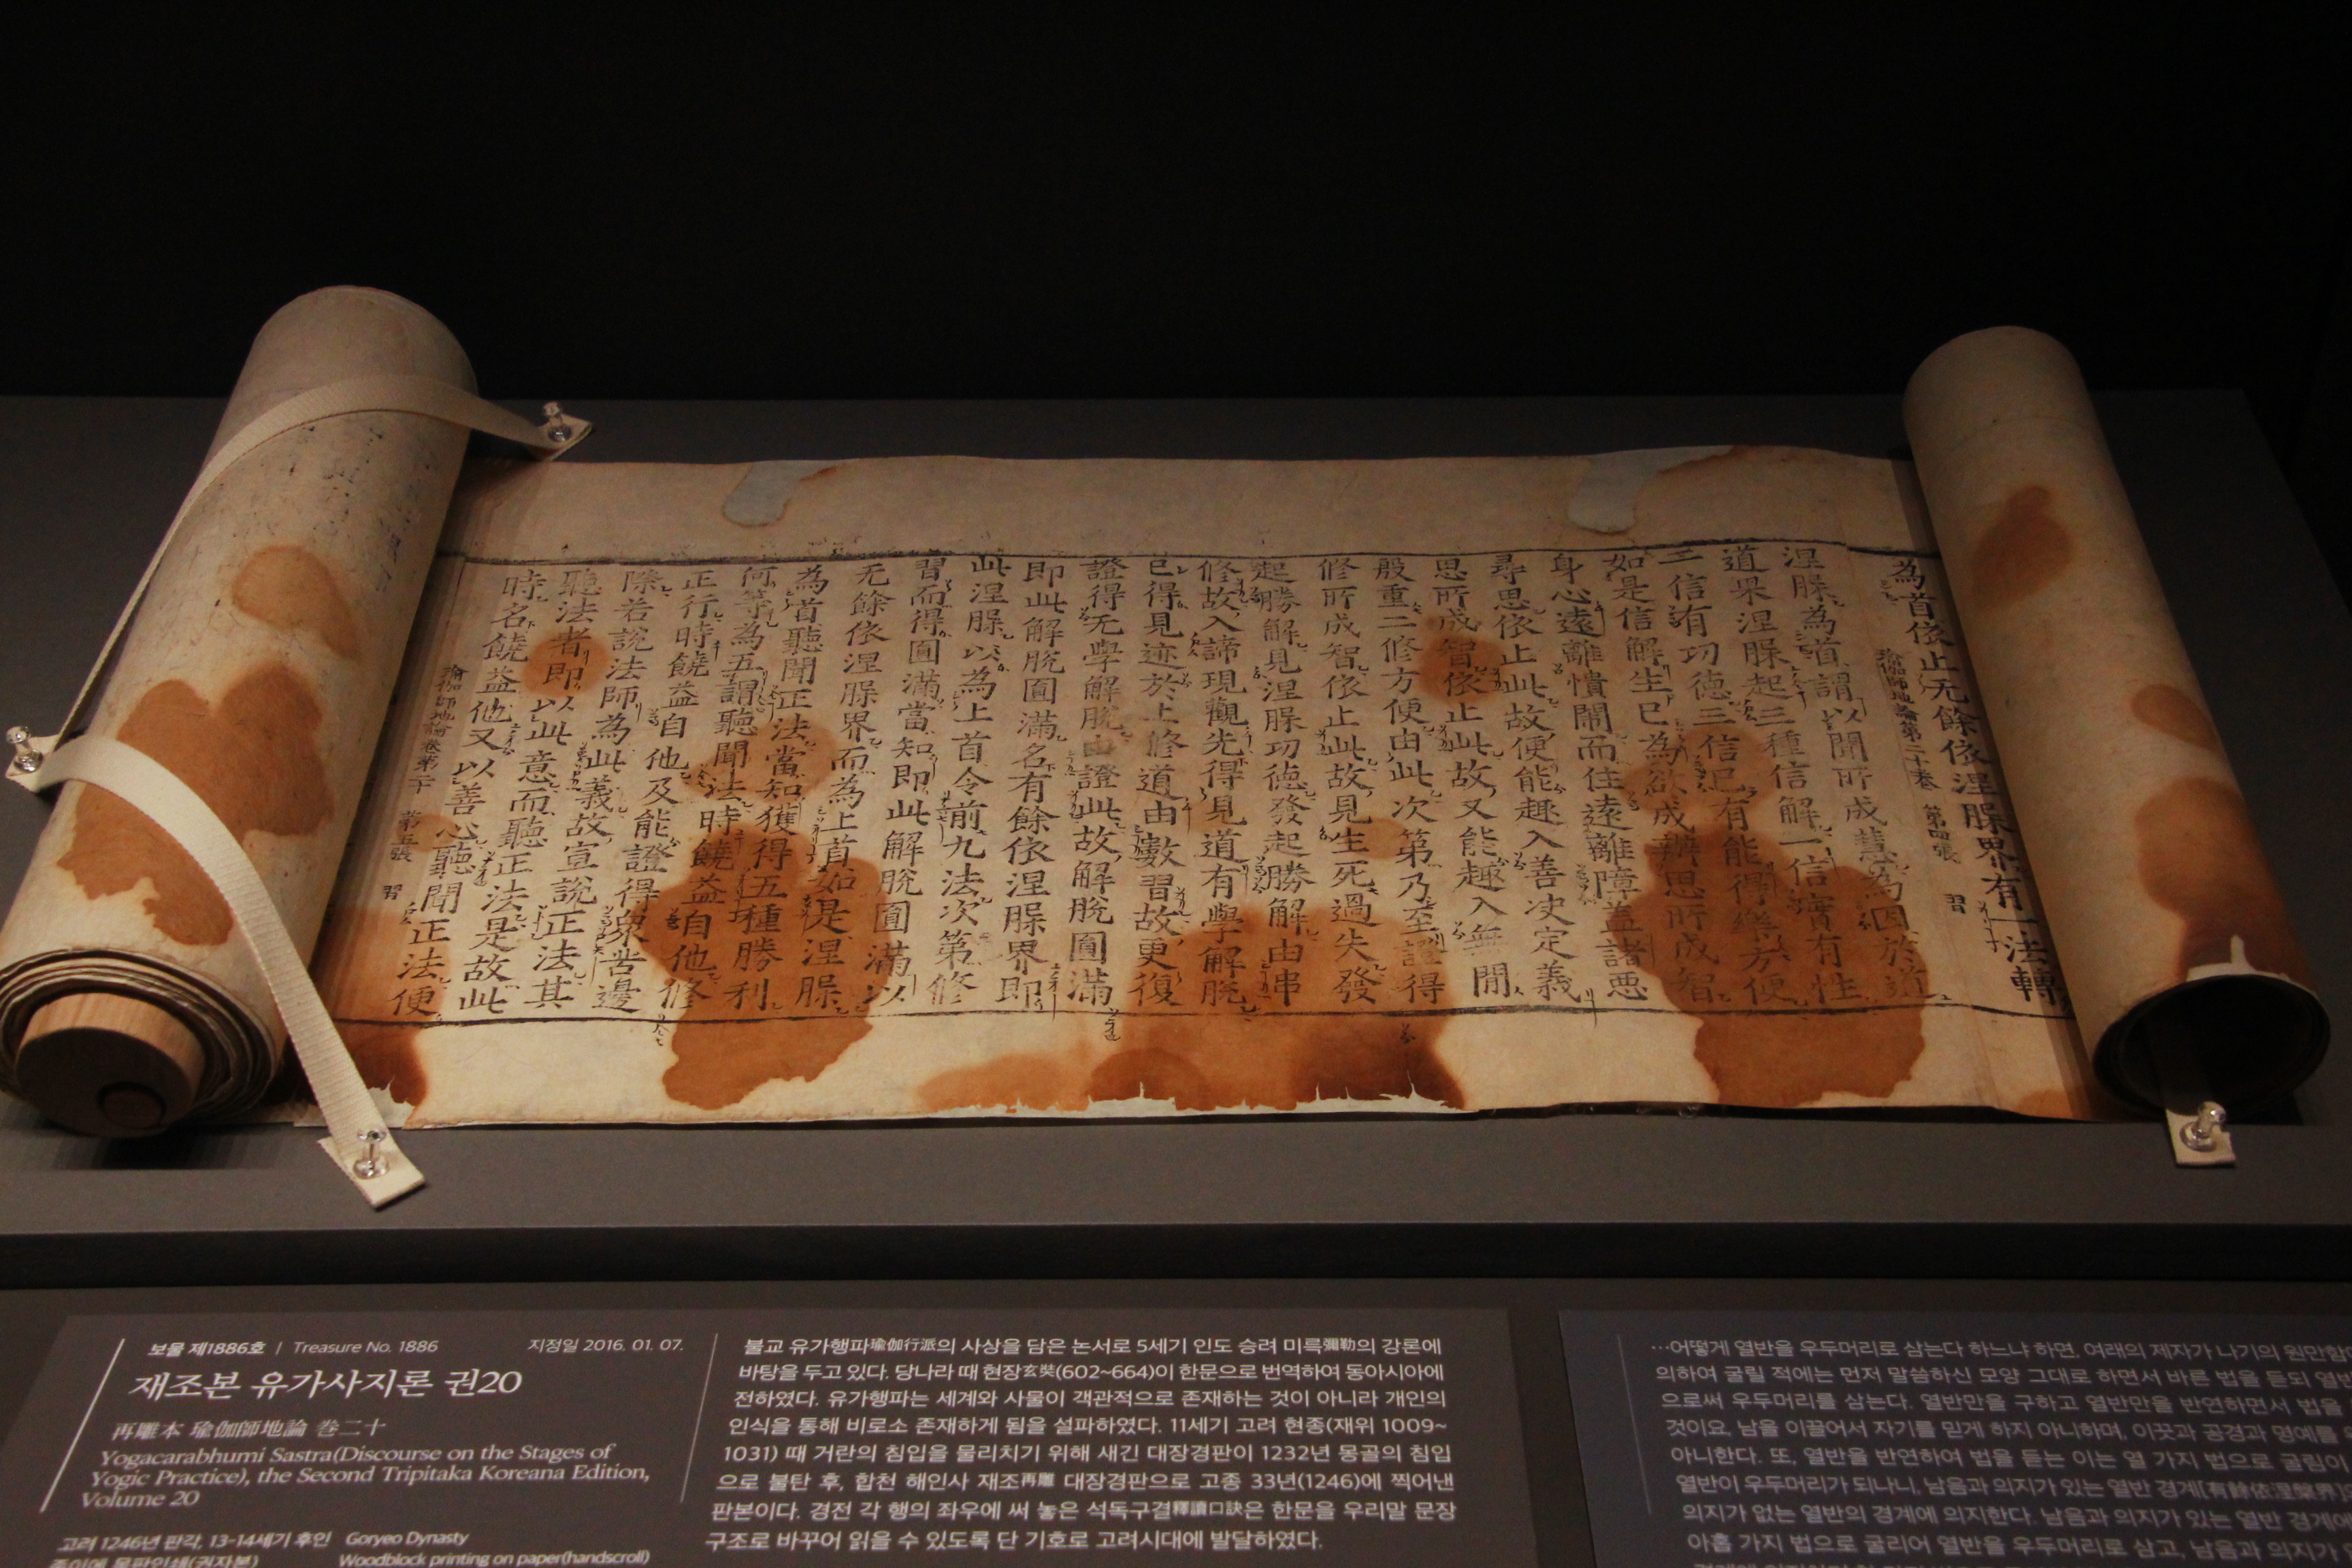 為首依止无餘依涅槃界有一法轉
瑜伽師地論第二十卷 第四張 習
涅槃為首謂以聞所成慧為因於道
道果涅槃起三種信解一信實有性
二信有功德三信己有能得樂方便
如是信解生已為欲成辦思所成智
身心遠離憒閙而住遠離障蓋諸惡
尋思依止此故便能趣入善決定義
思所成智依止此故又能趣入無閒
殷重二修方便由此次第乃至證得
修所成智依止此故見生死過失發
起勝解見涅槃功德發起勝解由串
修故入諦現觀先得見道有學解脫
已得見迹於上修道由數習故更復
證得无學解脫由證此故解脫圓滿
即此解脫圓滿名有餘依涅槃界即
此涅槃以為上首令前九法次第修
習而得圓滿當知即此解脫圓滿以
无餘依涅槃界而為上首如是涅槃
為首聽聞正法當知獲得五種勝利
何等為五謂聽聞法時饒益自他修
正行時饒益自他及能證得衆苦邊
際若說法師為此義故宣說正法其
聽法者即以此意而聽正法是故此
時名饒益他又以善心聽聞正法便
瑜伽師地論卷第二十 第五張 習
보물 제1886호 | Treasure No. 1886 지정일 2016. 01. 07.
재조본 유가사지론 권20
再雕本 瑜伽師地論 卷二十
Yogacarabhumi Sastra(Discourse on the Stages of
Yogic Practice), the Second Tripitaka Koreana Edition,
Volume 20
고려 1246년 판각, 13-14세기 후인 Goryeo Dynasty
종이에 목판인쇄(권자본) Woodblock printing on paper(handscroll)
불교 유가행파瑜伽行派의 사상을 담은 논서로 5세기 인도 승려 미륵彌勒의 강론에
바탕을 두고 있다. 당나라 때 현장玄奘(602~664)이 한문으로 번역하여 동아시아에
전하였다. 유가행파는 세계와 사물이 객관적으로 존재하는 것이 아니라 개인의
인식을 통해 비로소 존재하게 됨을 설파하였다. 11세기 고려 현종(재위 1009~
1031) 때 거란의 침입을 물리치기 위해 새긴 대장경판이 1232년 몽골의 침입
으로 불탄 후, 합천 해인사 재조再雕 대장경판으로 고종 33년(1246)에 찍어낸
판본이다. 경전 각 행의 좌우에 써 놓은 석독구결釋讀口訣은 한문을 우리말 문장
구조로 바꾸어 읽을 수 있도록 단 기호로 고려시대에 발달하였다.
…어떻게 열반을 우두머리로 삼는다 하느냐 하면, 여래의 제자가 나기의 원만함에
의하여 굴릴 적에는 먼저 말씀하신 모양 그대로 하면서 바른 법을 듣되 열반
으로써 우두머리를 삼는다. 열반만을 구하고 열반만을 반연하면서 법을
것이요, 남을 이끌어서 자기를 믿게 하지 아니하며, 이끗과 공경과 명예를
아니한다. 또, 열반을 반연하여 법을 듣는 이는 열 가지 법으로 굴림이
열반이 우두머리가 되나니, 남음과 의지가 있는 열반 경계[有餘依涅槃界]
의지가 없는 열반의 경계에 의지한다. 남음과 의지가 있는 열반 경계에
아홉 가지 법으로 굴리어 열반을 우두머리로 삼고, 남음과 의지가